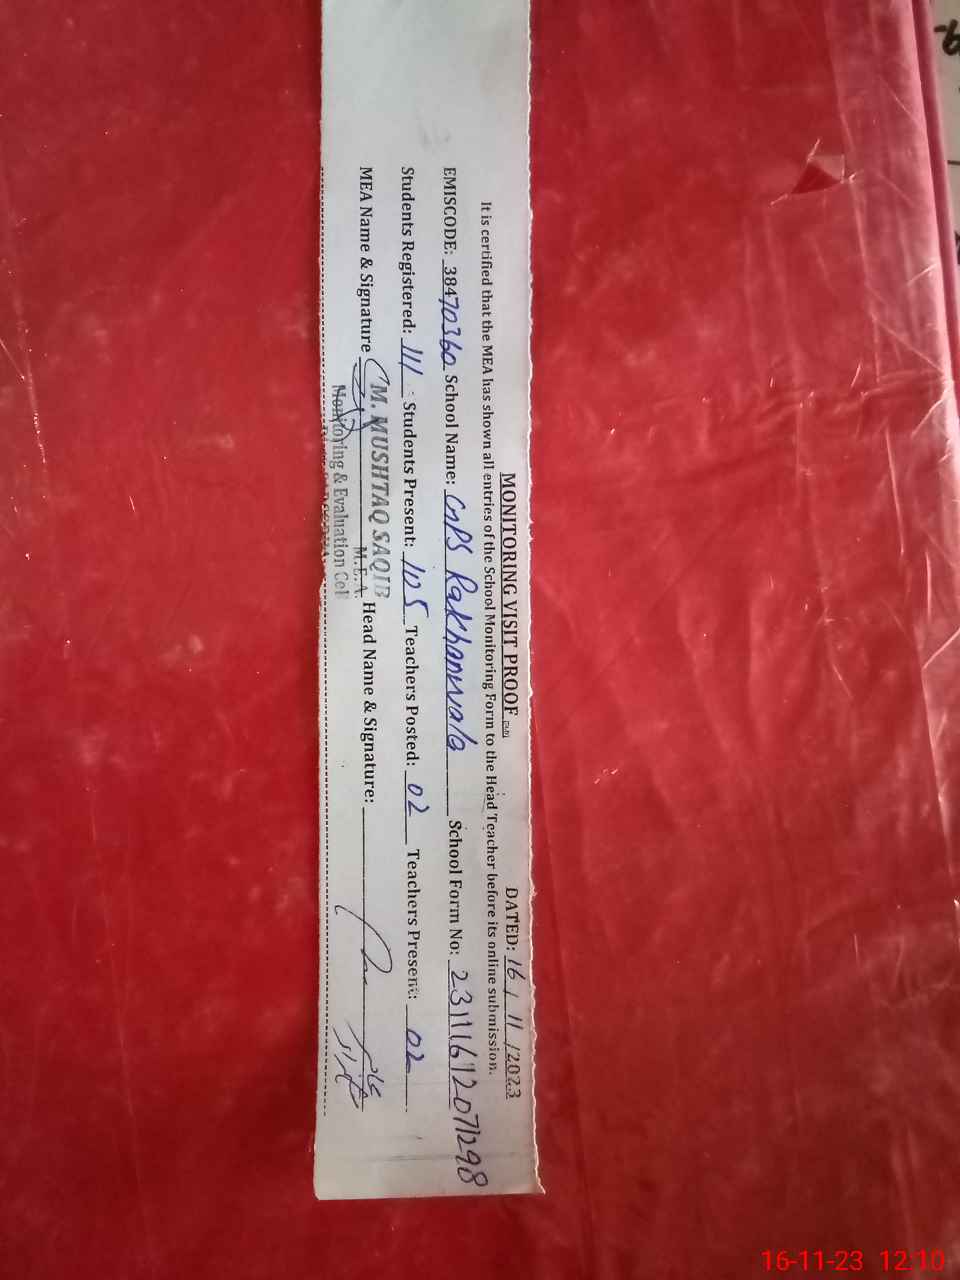 MONITORING VISIT PROOF DATED: 16 / 11 /2023
It is certified that the MEA has shown all entries of the School Monitoring Form to the Head Teacher before its online submission.
EMISCODE: 38470360 School Name: GPS Rakhanwala School Form No: 231116120711298
Students Registered: 111 Students Present: 105 Teachers Posted: 02 Teachers Present: 02
MEA Name & Signature M. MUSHTAQ SAQIB Head Name & Signature:
M.E.A.
Monitoring & Evaluation Cell
16-11-23 12:10